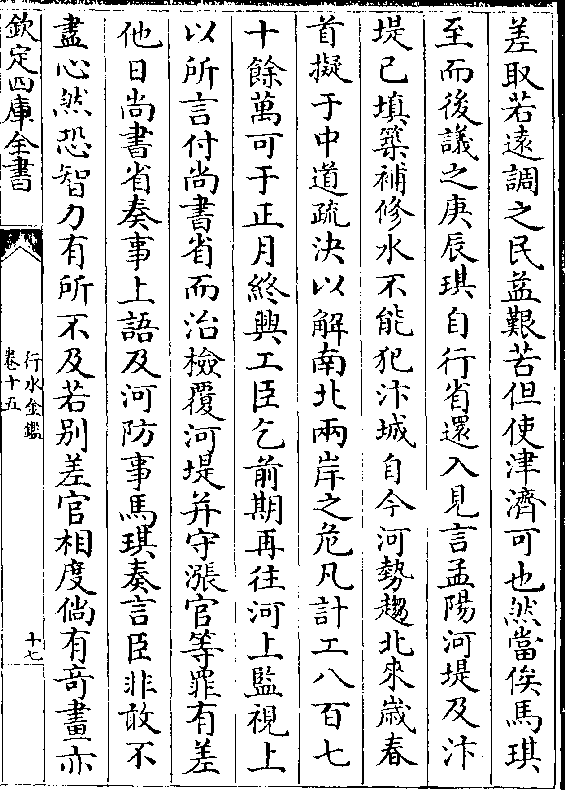 差取若遠調之民益艱苦但使津濟可也然當俟馬琪
至而後議之庚辰琪自行省還入見言孟陽河堤及汴
堤已填築補修水不能犯汴城自今河勢趨北來歲春
首擬于中道疏決以解南北兩岸之危凡計工八百七
十餘萬可于正月終興工臣乞前期再往河上監視上
以所言付尚書省而治檢覆河堤并守漲官等罪有差
他日尚書省奏事上語及河防事馬琪奏言臣非敢不
盡心然恐智力有所不及若別差官相度倘有竒畫亦
欽定四庫全書
行水金鑑
卷十五
十七